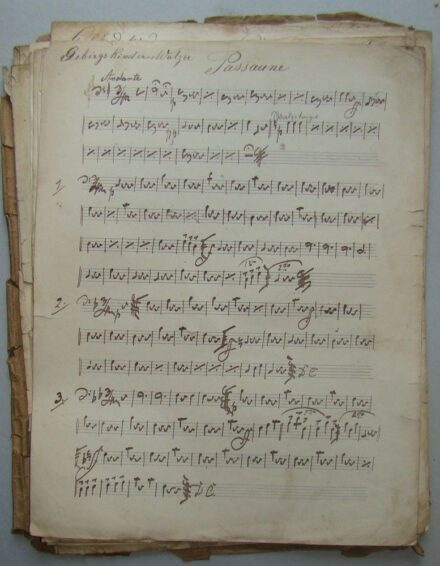 Gebirgs Kinder Walzer
Passaune
Andante
1.
2.
D C
3.
D C